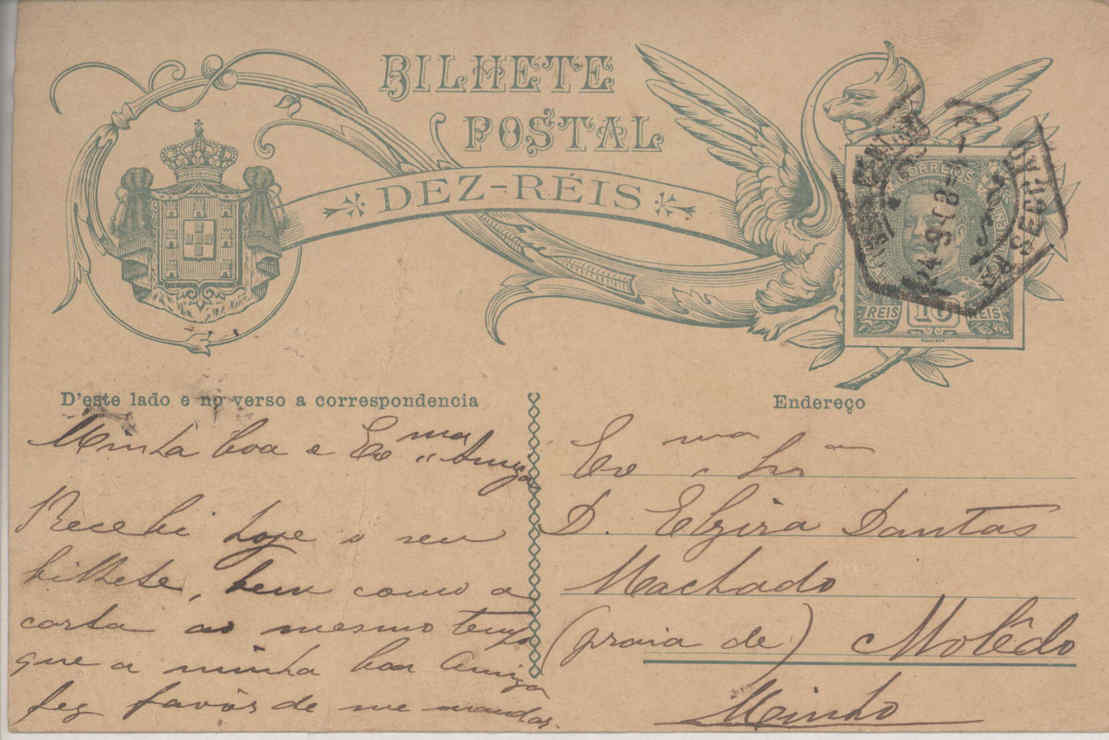 BILHETE
POSTAL
DEZ-RÉIS
CORREIOS
REIS 10 REIS
24 9
SECÇÃO
D'este lado e no verso a correspondencia
Endereço
Minha boa e Exma Amiga
Recebi hoje o seu
bilhete, bem como a
carta ao mesmo tempo
que a minha boa Amiga
fez favôr de me mandar.
Exma Sra
D. Elzira Dantas
Machado
(praia de) Molêdo
Minho